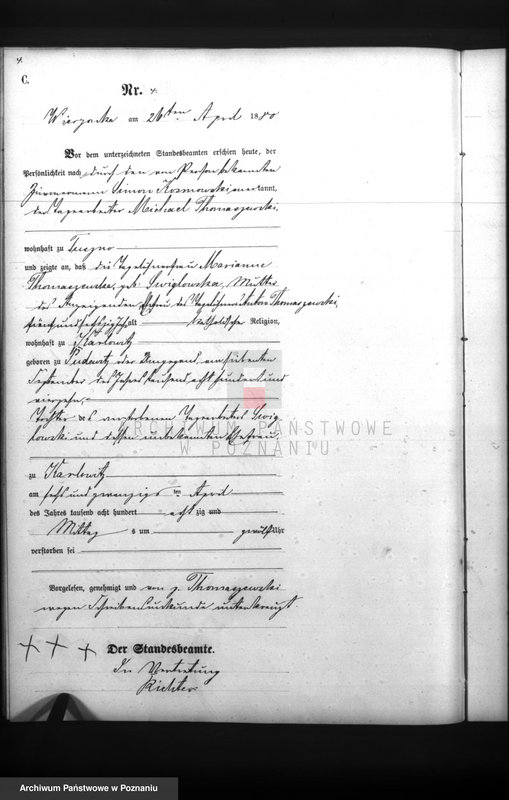 4.
C.
Nr. 4.
am 26ten April 1880
Vor dem unterzeichneten Standesbeamten erschien heute, der
Persönlichkeit nach durch den von Person bekannten
Zimmermann Simon Rozmowski anerkannt,
der Tagearbeiter Michael Thomaszewski,
wohnhaft zu
und zeigte an, daß die Tagelöhnerfrau Marianne
Thomaszewska, geb. Swiglowska, Mutter
des Anzeigenden Ehefrau des Tagelöhners Anton Thomaszewski,
fünfundsechzig Jahr alt katholische Religion,
wohnhaft zu Karlowitz
geboren zu Pudewitz der Umgegend am siebenten
September des Jahres tausend acht hundert und
vierzehn,
Tochter des verstorbenen Tagearbeiters Swig-
lowski und dessen unbekannten Ehefrau,
zu Karlowitz
am sechs und zwanzigs ten April
des Jahres tausend acht hundert acht zig und
Mittag s um zwölf Uhr
verstorben sei
Vorgelesen, genehmigt und von p. Thomaszewski
wegen Schreibensunkunde unterkreuzt.
+ + + Der Standesbeamte.
In Vertretung
Richter
ARCHIWUM PAŃSTWOWE
W POZNANIU
Archiwum Państwowe w Poznaniu